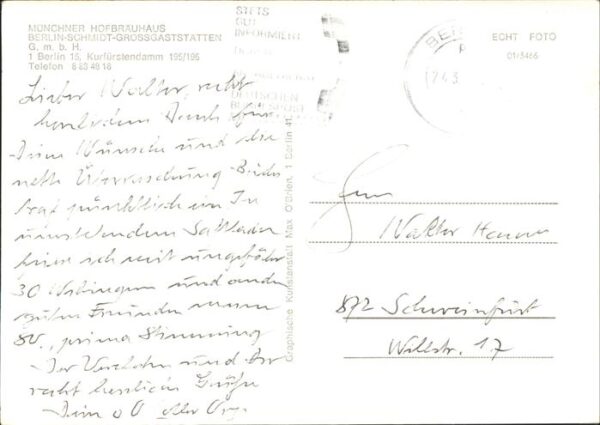 MÜNCHNER HOFBRÄUHAUS
BERLIN-SCHMIDT-GROSSGASTSTÄTTEN
G. m. b. H.
1 Berlin 15, Kurfürstendamm 195/196
Telefon 8 83 49 18
STETS
GUT
INFORMIERT
DEUTSCHEN
BUNDESPOST
ECHT FOTO
01/3466
Lieber Walter, recht
herzlichen Dank für
Deine Wünsche und die
nette Überraschung. Beides
traf pünktlich ein. Im
feiere ich mit ungefähr
30 und anderen
guten Freunden meinen
80., prima Stimmung
Dir und
recht herzliche Grüße
Dein
Graphische Kunstanstalt Max O'Brien, 1 Berlin 41
Herrn
Walter
872 Schweinfurt
Willstr. 17